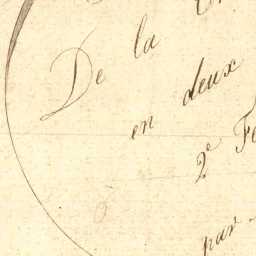 De la
en deux
2e
par